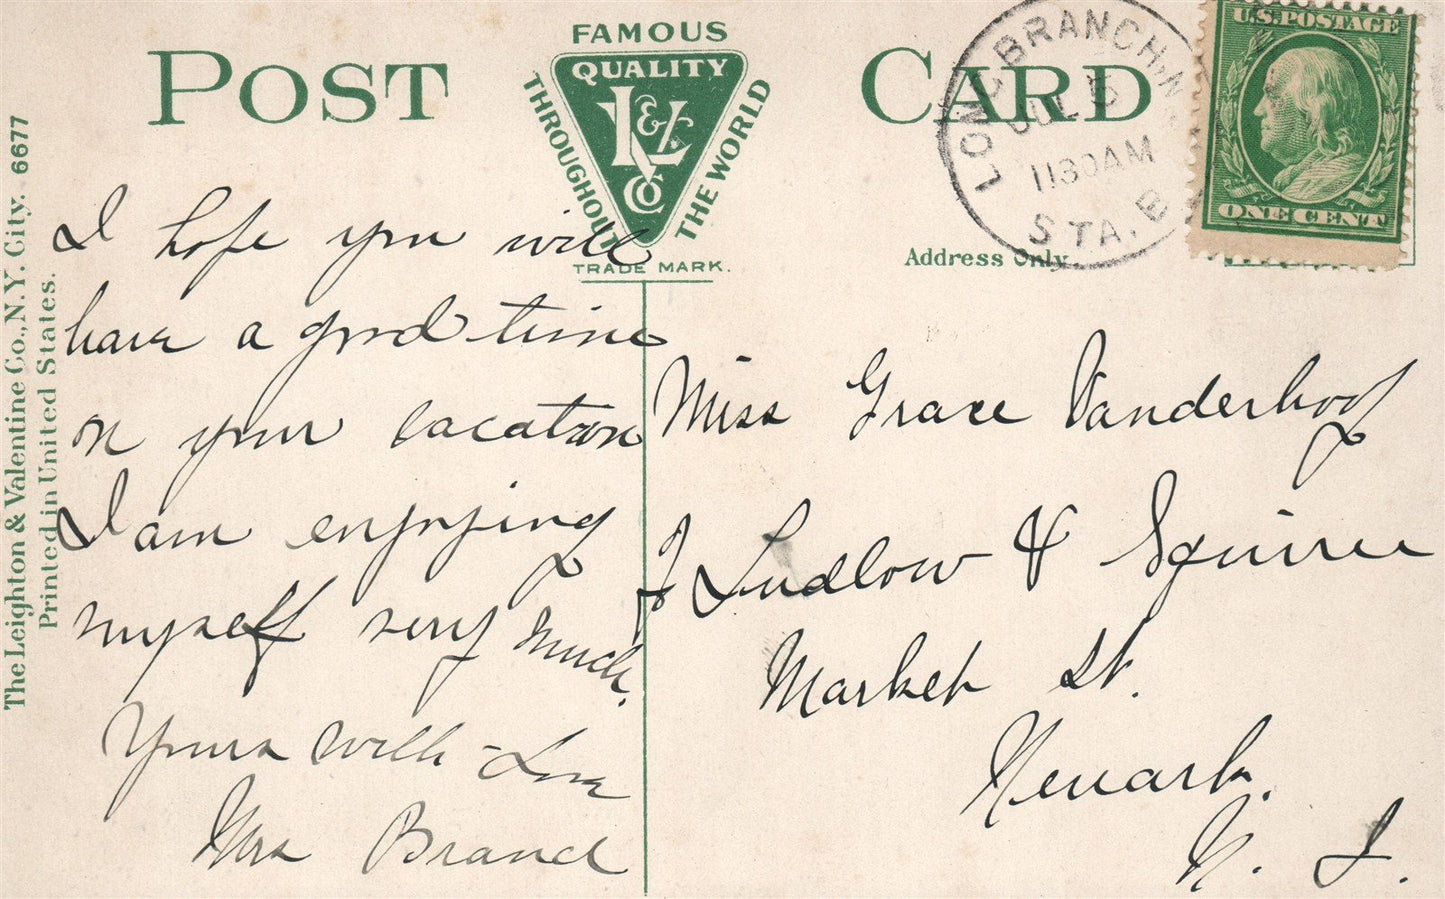 POST CARD
FAMOUS
QUALITY
L & V Co
THROUGHOUT
THE WORLD
TRADE MARK.
LONG BRANCH, N
JUL 5
1130AM
STA. B
U.S. POSTAGE
ONE CENT
Address Only.
The Leighton & Valentine Co., N.Y. City. 6677
Printed in United States.
I hope you will
have a good time
on your vacation
I am enjoying
myself very much.
Yours with Love
Mrs Brand
Miss Grace Vanderhoof
Ludlow & Squire
Market St.
Newark.
N. J.